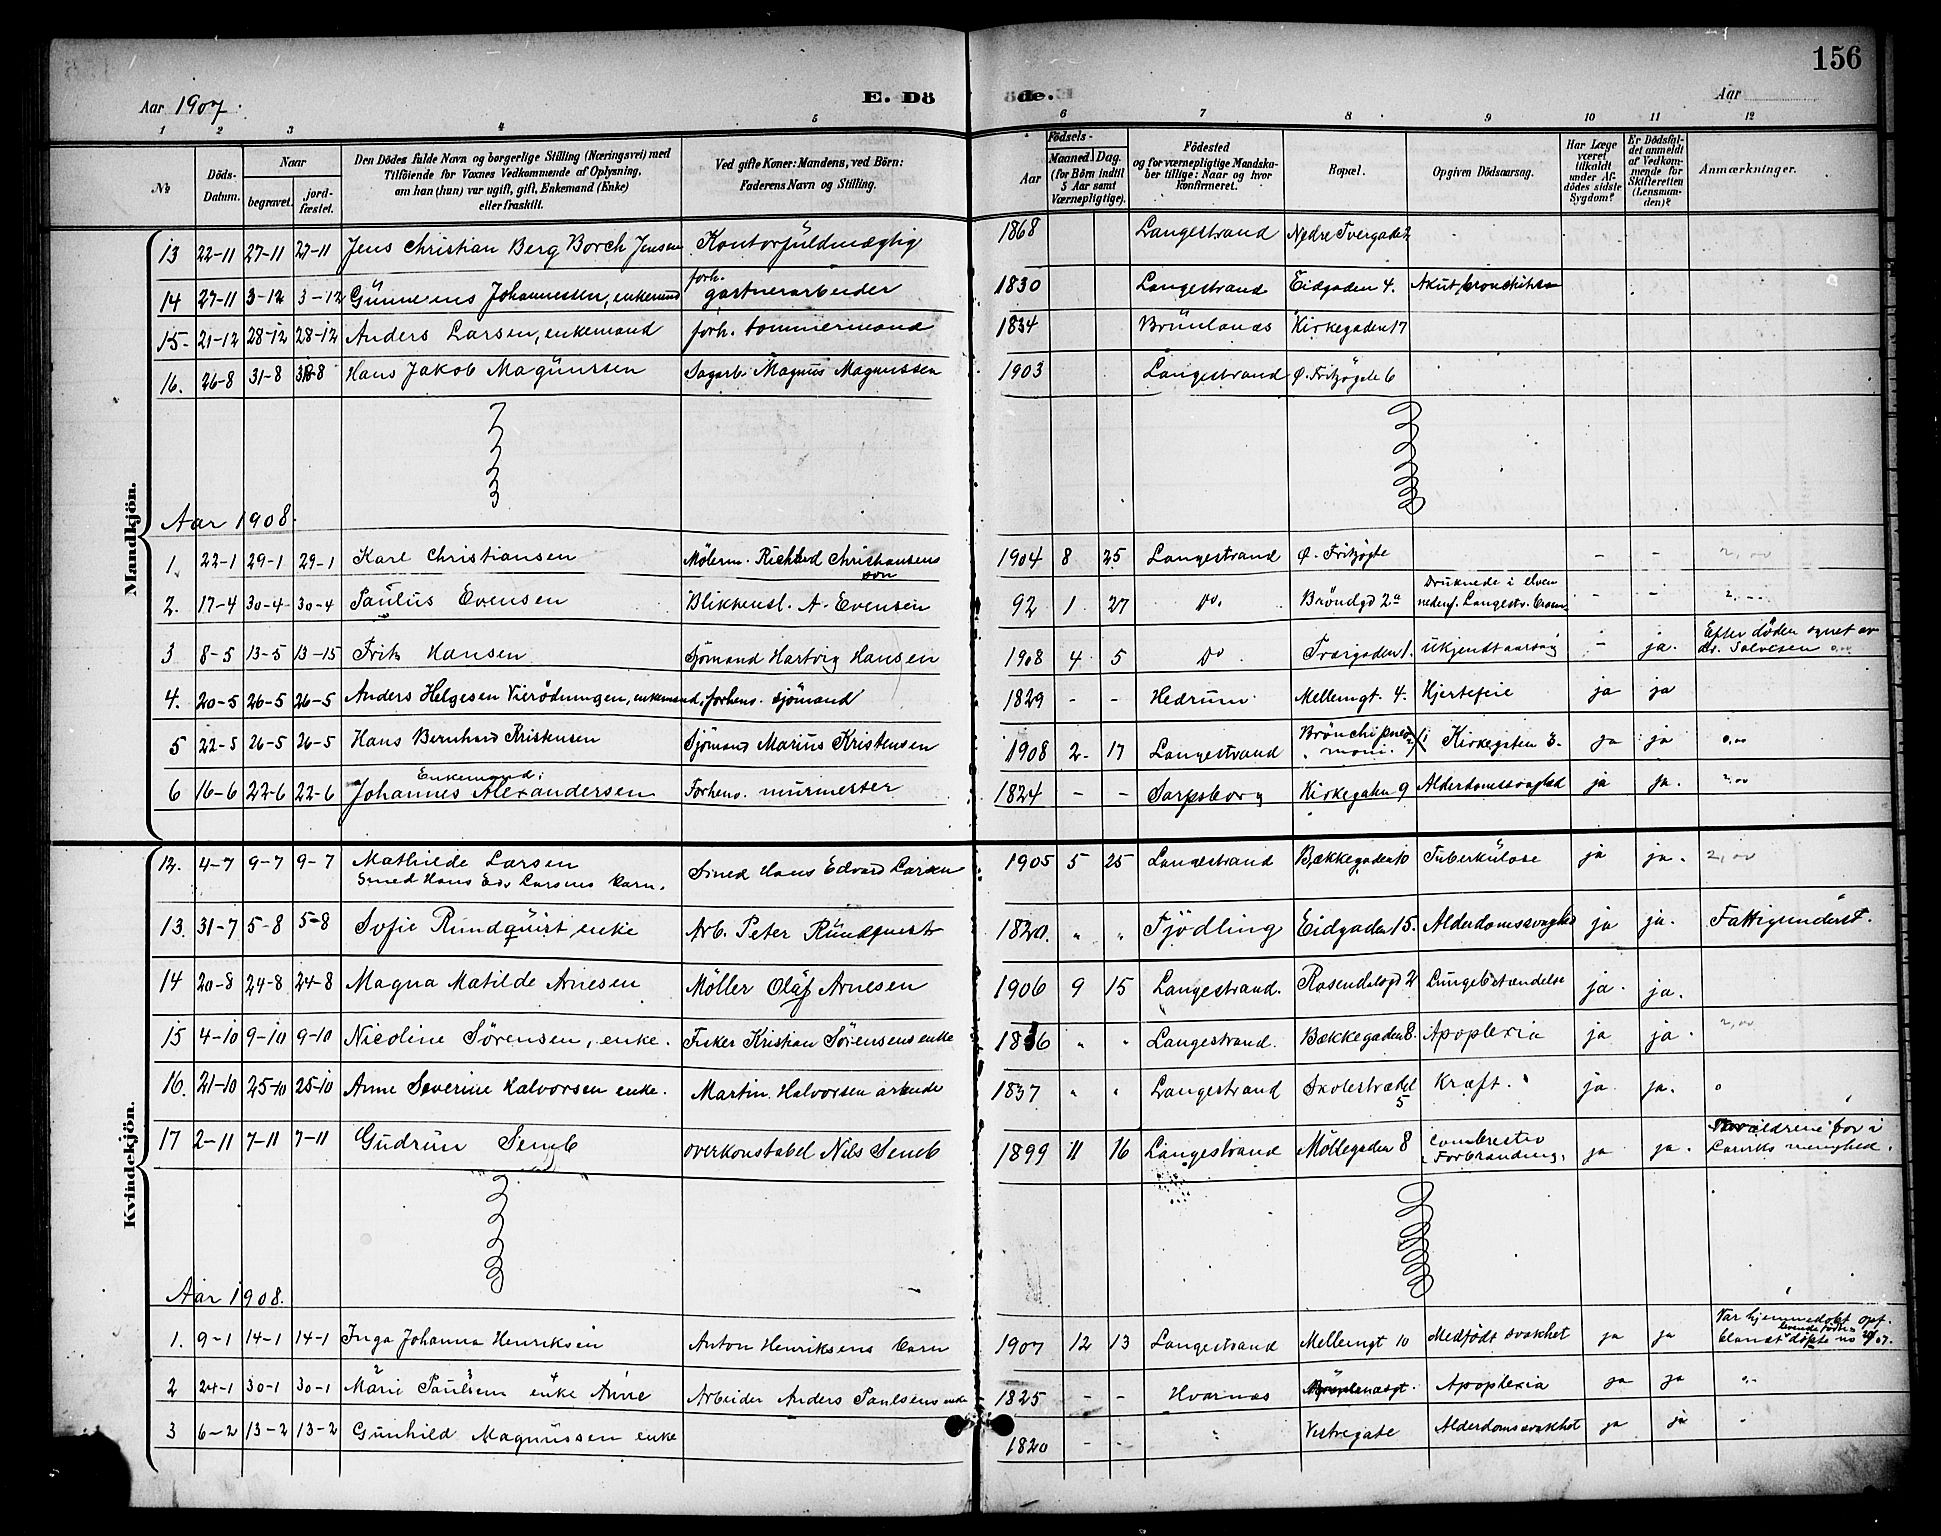 156
Aar 1907. E. Dö de. Aar
1 2 3 4 5 6 7 8 9 10 11 12
№ Döds-Datum. Naar begravet. jord-fæstet. Den Dödes fulde Navn og borgerlige Stilling (Næringsvei) med Tilföiende for Voxnes Vedkommende af Oplysning, om han (hun) var ugift, gift, Enkemand (Enke) eller fraskilt. Ved gifte Koner: Mandens, ved Börn: Faderens Navn og Stilling. Födsels- Aar Maaned. Dag. (for Börn indtil 5 Aar samt Værnepligtige). Födested og for værnepligtige Mandskaber tillige: Naar og hvor konfirmeret. Bopæl. Opgiven Dödsaarsag. Har Læge været tilkaldt under Afdödes sidste Sygdom? Er Dödsfaldet anmeldt af Vedkommende for Skifteretten (Lensmanden)? Anmærkninger.
Mandkjön.
13 22-11 27-11 27-11 Jens Christian Berg Borch Jensen Kontorfuldmægtig 1868 Langestrand Nedre Tvergade 2
14 27-11 3-12 3-12 Johannessen, enkemd forh. gartnerarbeider 1830 Langestrand Eidgaden 4. Akut bronchitis
15- 21-12 28-12 28-12 Anders Larsen, enkemand forh. tømmermand 1834 Brunlanæs Kirkegaden 17
16. 26-8 31-8 31-8 Hans Jakob Magnussen Sagarb. Magnus Magnussen 1903 Langestrand Ø. Fritzøgte 6
Aar 1908.
1. 22-1 29-1 29-1 Karl Christiansen Mølerm. Richard Christiansens søn 1904 8 25 Langestrand Ø. Fritzøgte - - 2,00
2. 17-4 30-4 30-4 Paulus Evensen Blikkensl. A. Evensen 92 1 27 Do. Brøndgd 2a Druknede i elven nedenf. Langestr. - -
3 8-5 13-5 13-15 Fritz Hansen Sjömand Hartvig Hansen 1908 4 5 Do Tvergaden 1. Ukjendt aarsag - ja. Efter døden synet av dr. Salvesen
4. 20-5 26-5 26-5 Anders Helgesen Vierødningen, enkemand, forhens. sjömand 1829 - - Hedrum Mellemgt. 4. Hjertefeil ja ja
5 22-5 26-5 26-5 Hans Bernhard Kristensen Sjömand Marius Kristensen 1908 2- 17 Langestrand Brönchipneumoni. Kirkegaten 3. ja ja
6 16-6 22-6 22-6 Enkemand: Johannes Alexandersen Forhens. murmester 1824 - - Sarpsborg Kirkegaten 9 Alderdomssvaghed ja ja. 2,00
Kvindekjön.
12. 4-7 9-7 9-7 Mathilde Larsen Smed Hans Edv Larsens barn. Smed Hans Edvard Larsen 1905 5 25 Langestrand Bækkegaden 10 Tuberkulose ja ja. 2,00
13. 31-7 5-8 5-8 Sofie Rundquist enke Arb. Peter Rundquist 1820. " " Tjödling Eidgaden 15. Alderdomssvaghed ja ja. Fattigunderst.
14 20-8 24-8 24-8 Magna Matilde Arnesen Möller Olaf Arnesen 1906 9 15 Langestrand. Rosendalsgd 2 Lungebetændelse ja. ja.
15 4-10 9-10 9-10 Nicoline Sørensen, enke. Fisker Kristian Sørensens enke 1836 " " Langestrand. Bækkegaden 8. Apoplexia ja ja. 2,00
16. 21-10 25-10 25-10 Anne Severine Halvorsen enke. Martin Halvorsen arbeide 1837 " " Langestrand Skolestrædet 5 Kræft. ja. ja.
17 2-11 7-11 7-11 Gudrun Semb Overkonstabel Nils Semb 1899 11 16 Langestrand Möllegaden 8 Combustio Forbrænding. ja ja. Forældrene bor i Larviks menighed.
Aar 1908.
1. 9-1 14-1 14-1 Inga Johanna Henriksen Anton Henriksens barn 1907 12 13 Langestrand Mellemgt 10 Medfödt svakhet ja ja Var hjemmedøbt opf. blandt døpte no
2 24-1 30-1 30-1 Marie Paulsen enke Anne Arbeider Anders Paulsens enke 1825 - - Hvarnæs Apoplexia ja ja
3 6-2 13-2 13-2 Gunhild Magnussen enke 1820 - - " Vestregate Alderdomssvakhet ja ja "